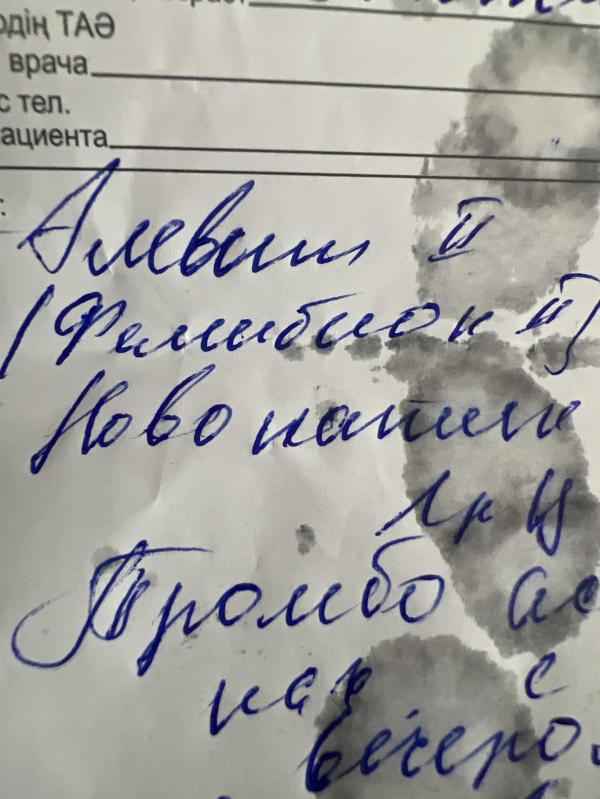 рдің ТАӘ
врача
с тел.
ациента
:
Алевит II
(Фемибион II)
Новонатил
1к
Тромбо ас
на
с
вечеро